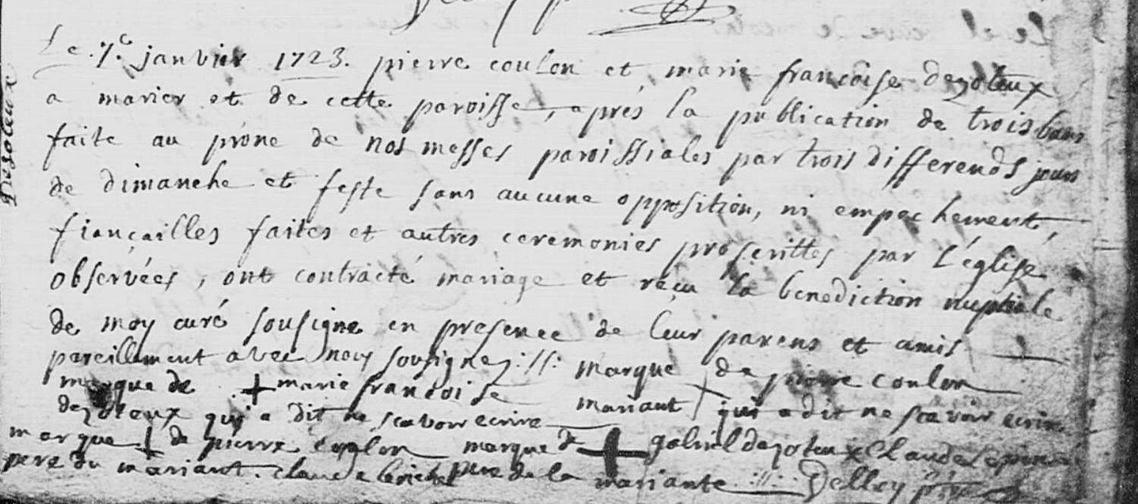 Le 7e janvier 1723. pierre coulon et marie françoise dezoteux
a marier et de cette paroisse, aprés la publication de trois bans
faite au prône de nos messes paroissiales par trois differends jours
de dimanche et feste sans aucune opposition, ni empechement,
fiançailles faites et autres ceremonies prescrittes par l'église
observées, ont contracté mariage et réçu la benediction nuptiale
de moy curé sousigné en presence de leur parens et amis
pareillement avec nous sousignez :||: marque de pierre coulon
marque de + marie francoise mariant + qui a dit ne scavoir ecrire
dezoteux qui a dit ne scavoir ecrire
marque + de pierre coulon marque de + gabriel dezoteux Claude
pere du mariant. claude pere de la mariante :||:
dezoteux